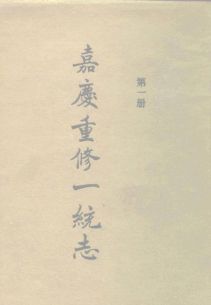 嘉慶重修一統志
第一册